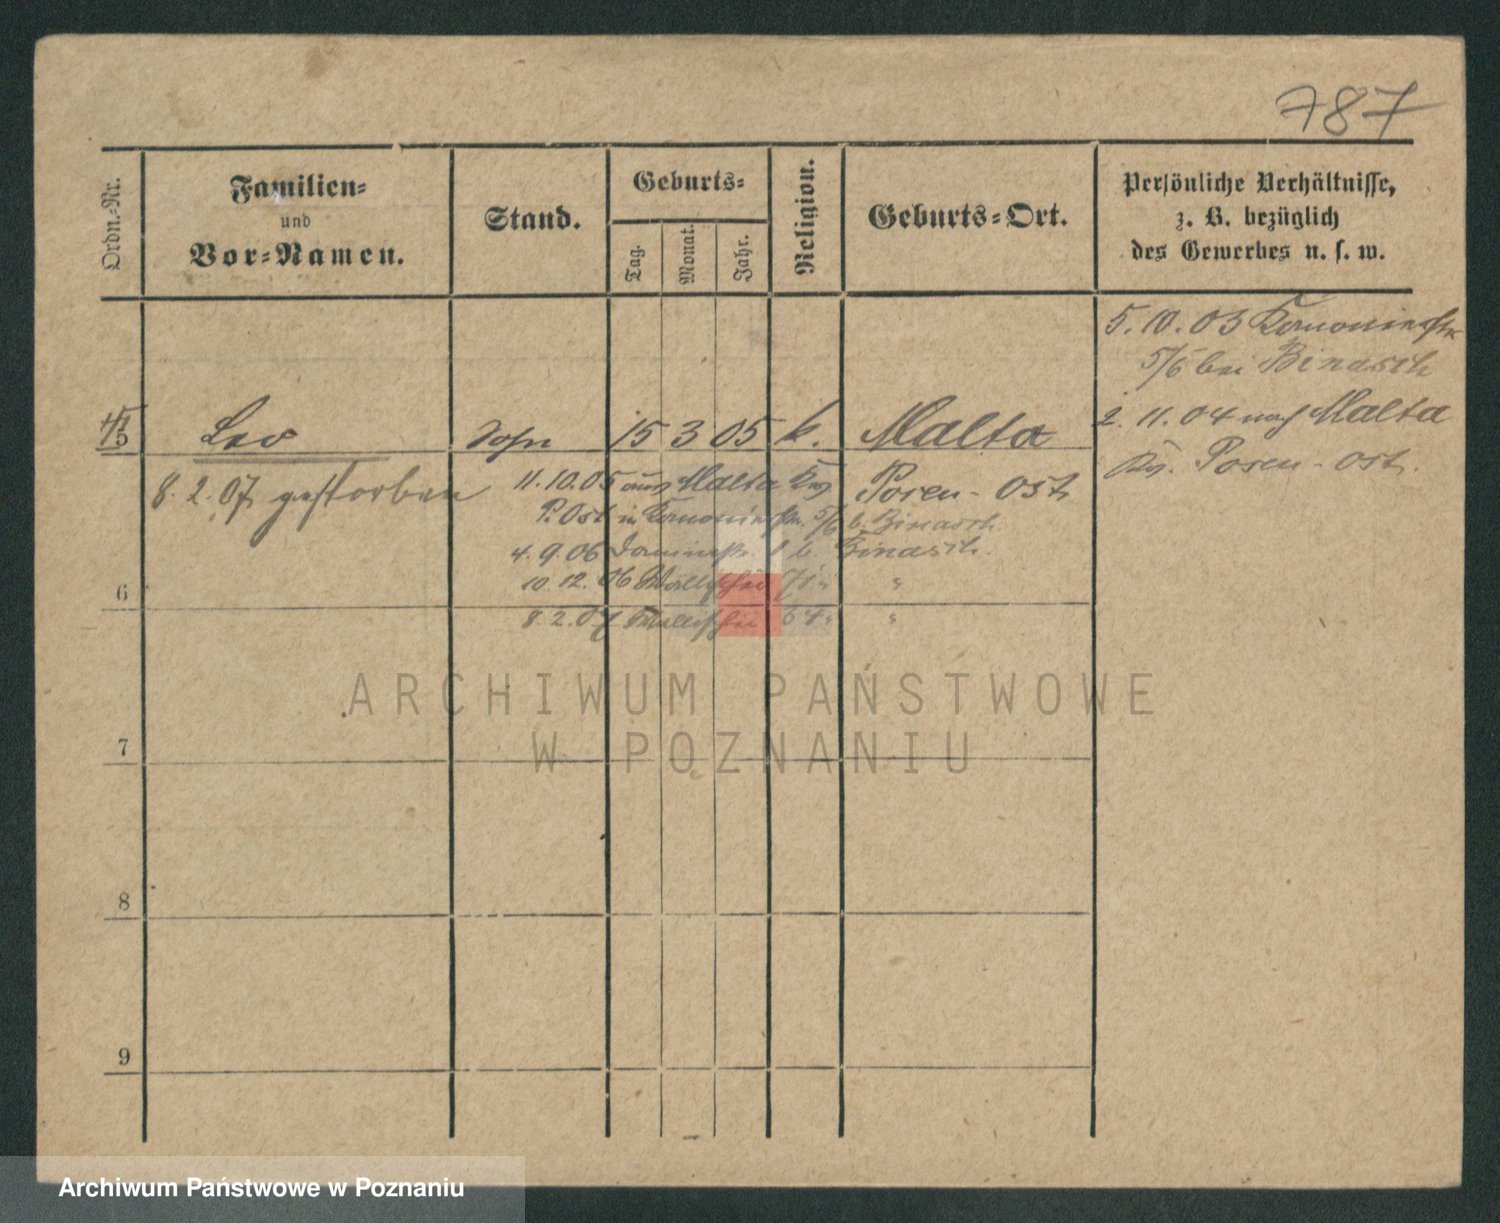 787
Ordn.-Nr.
Familien-
und
Vor-Namen.
Stand.
Geburts-
Tag.
Monat.
Jahr.
Religion.
Geburts-Ort.
Persönliche Verhältnisse,
z. B. bezüglich
des Gewerbes u. s. w.
5. 10. 03
5/6 bei Binasch
2. 11. 04 nach Malta
Kr. Posen-Ost.
5 Leo Sohn 15 3 05 k. Malta
Posen-Ost
8. 2. 07 gestorben
11. 10. 05 aus Malta Krs
P. Ost in 5/6 b. Binasch
4. 9. 06 1 b. Binasch.
6
10. 12. 06 Wallischei 71 "
8. 2. 07 Wallischei "
7
8
9
ARCHIWUM PAŃSTWOWE
W POZNANIU
Archiwum Państwowe w Poznaniu